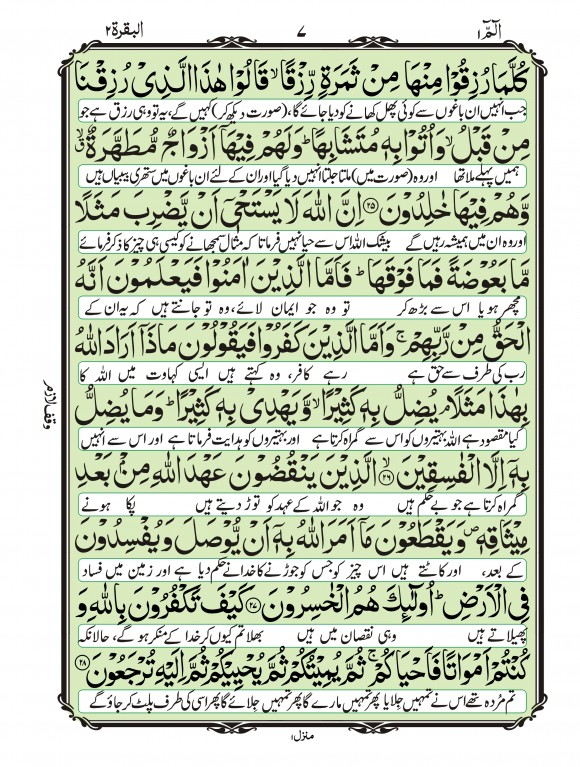 الٓمّٓ ١ ٧ البقرة ٢
كُلَّمَا رُزِقُوْا مِنْهَا مِنْ ثَمَرَةٍ رِّزْقًا ۙ قَالُوْا هٰذَا الَّذِىْ رُزِقْنَا
جب انہیں ان باغوں سے کوئی پھل کھانے کو دیا جائے گا، (صورت دیکھ کر) کہیں گے، یہ تو وہی رزق ہے جو
مِنْ قَبْلُ ۙ وَاُتُوْا بِهٖ مُتَشَابِهًا ؕ وَلَهُمْ فِيْهَاۤ اَزْوَاجٌ مُّطَهَّرَةٌ ۙۗ
ہمیں پہلے ملا تھا اور وہ (صورت میں) ملتا جلتا انہیں دیا گیا اور ان کے لئے ان باغوں میں ستھری بیبیاں ہیں
وَّهُمْ فِيْهَا خٰلِدُوْنَ ﴿۲۵﴾ اِنَّ اللّٰهَ لَا يَسْتَحْىٖۤ اَنْ يَّضْرِبَ مَثَلًا
اور وہ ان میں ہمیشہ رہیں گے بیشک اللہ اس سے حیا نہیں فرماتا کہ مثال سمجھانے کو کیسی ہی چیز کا ذکر فرمائے
مَّا بَعُوْضَةً فَمَا فَوْقَهَا ؕ فَاَمَّا الَّذِيْنَ اٰمَنُوْا فَيَعْلَمُوْنَ اَنَّهُ
مچھر ہو یا اس سے بڑھ کر تو وہ جو ایمان لائے، وہ تو جانتے ہیں کہ یہ ان کے
الْحَقُّ مِنْ رَّبِّهِمْ ۚ وَاَمَّا الَّذِيْنَ كَفَرُوْا فَيَقُوْلُوْنَ مَاذَاۤ اَرَادَ اللّٰهُ
رب کی طرف سے حق ہے رہے کافر، وہ کہتے ہیں ایسی کہاوت میں اللہ کا
بِهٰذَا مَثَلًا ۘ يُضِلُّ بِهٖ كَثِيْرًا ۙ وَّيَهْدِىْ بِهٖ كَثِيْرًا ؕ وَمَا يُضِلُّ
وقف لازم
کیا مقصود ہے اللہ بہتیروں کو اس سے گمراہ کرتا ہے اور بہتیروں کو ہدایت فرماتا ہے اور اس سے انہیں
بِهٖۤ اِلَّا الْفٰسِقِيْنَ ﴿۲۶﴾ ۙ الَّذِيْنَ يَنْقُضُوْنَ عَهْدَ اللّٰهِ مِنْۢ بَعْدِ
گمراہ کرتا ہے جو بے حکم ہیں وہ جو اللہ کے عہد کو توڑ دیتے ہیں پکا ہونے
مِيْثَاقِهٖ ۪ وَيَقْطَعُوْنَ مَاۤ اَمَرَ اللّٰهُ بِهٖۤ اَنْ يُّوْصَلَ وَيُفْسِدُوْنَ
کے بعد، اور کاٹتے ہیں اس چیز کو جس کو جوڑنے کا خدا نے حکم دیا ہے اور زمین میں فساد
فِى الْاَرْضِ ؕ اُولٰٓئِكَ هُمُ الْخٰسِرُوْنَ ﴿۲۷﴾ كَيْفَ تَكْفُرُوْنَ بِاللّٰهِ وَ
پھیلاتے ہیں وہی نقصان میں ہیں بھلا تم کیوں کر خدا کے منکر ہو گے، حالانکہ
كُنْتُمْ اَمْوَاتًا فَاَحْيَاكُمْ ۚ ثُمَّ يُمِيْتُكُمْ ثُمَّ يُحْيِيْكُمْ ثُمَّ اِلَيْهِ تُرْجَعُوْنَ ﴿۲۸﴾
تم مردہ تھے اس نے تمہیں جِلایا پھر تمہیں مارے گا پھر تمہیں جِلائے گا پھر اسی کی طرف پلٹ کر جاؤ گے
منزل ۱